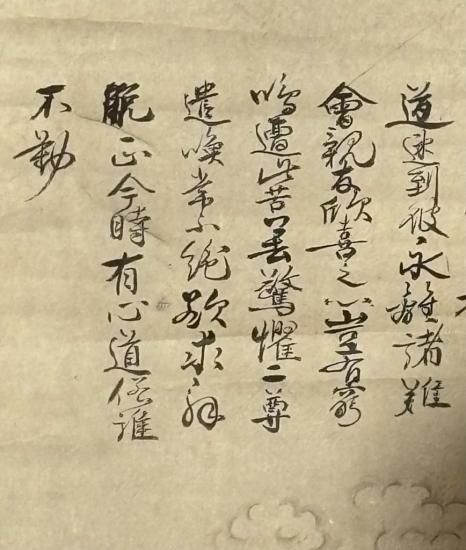 道速到彼永離諸難
會親友欣喜之心豈有窮
嗚遭此苦善驚懼二尊
遣喚常不絶欲求解
脱正今時有心道俗誰
不勤